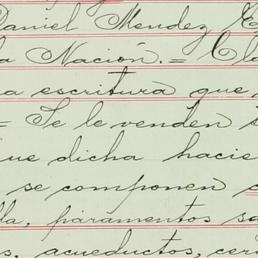 Daniel Mendez E
a Nación. = Cla
a escritura que
= Se le venden s
ue dicha hacie
se componen c
lla, paramentos sa
s, acueductos, cer